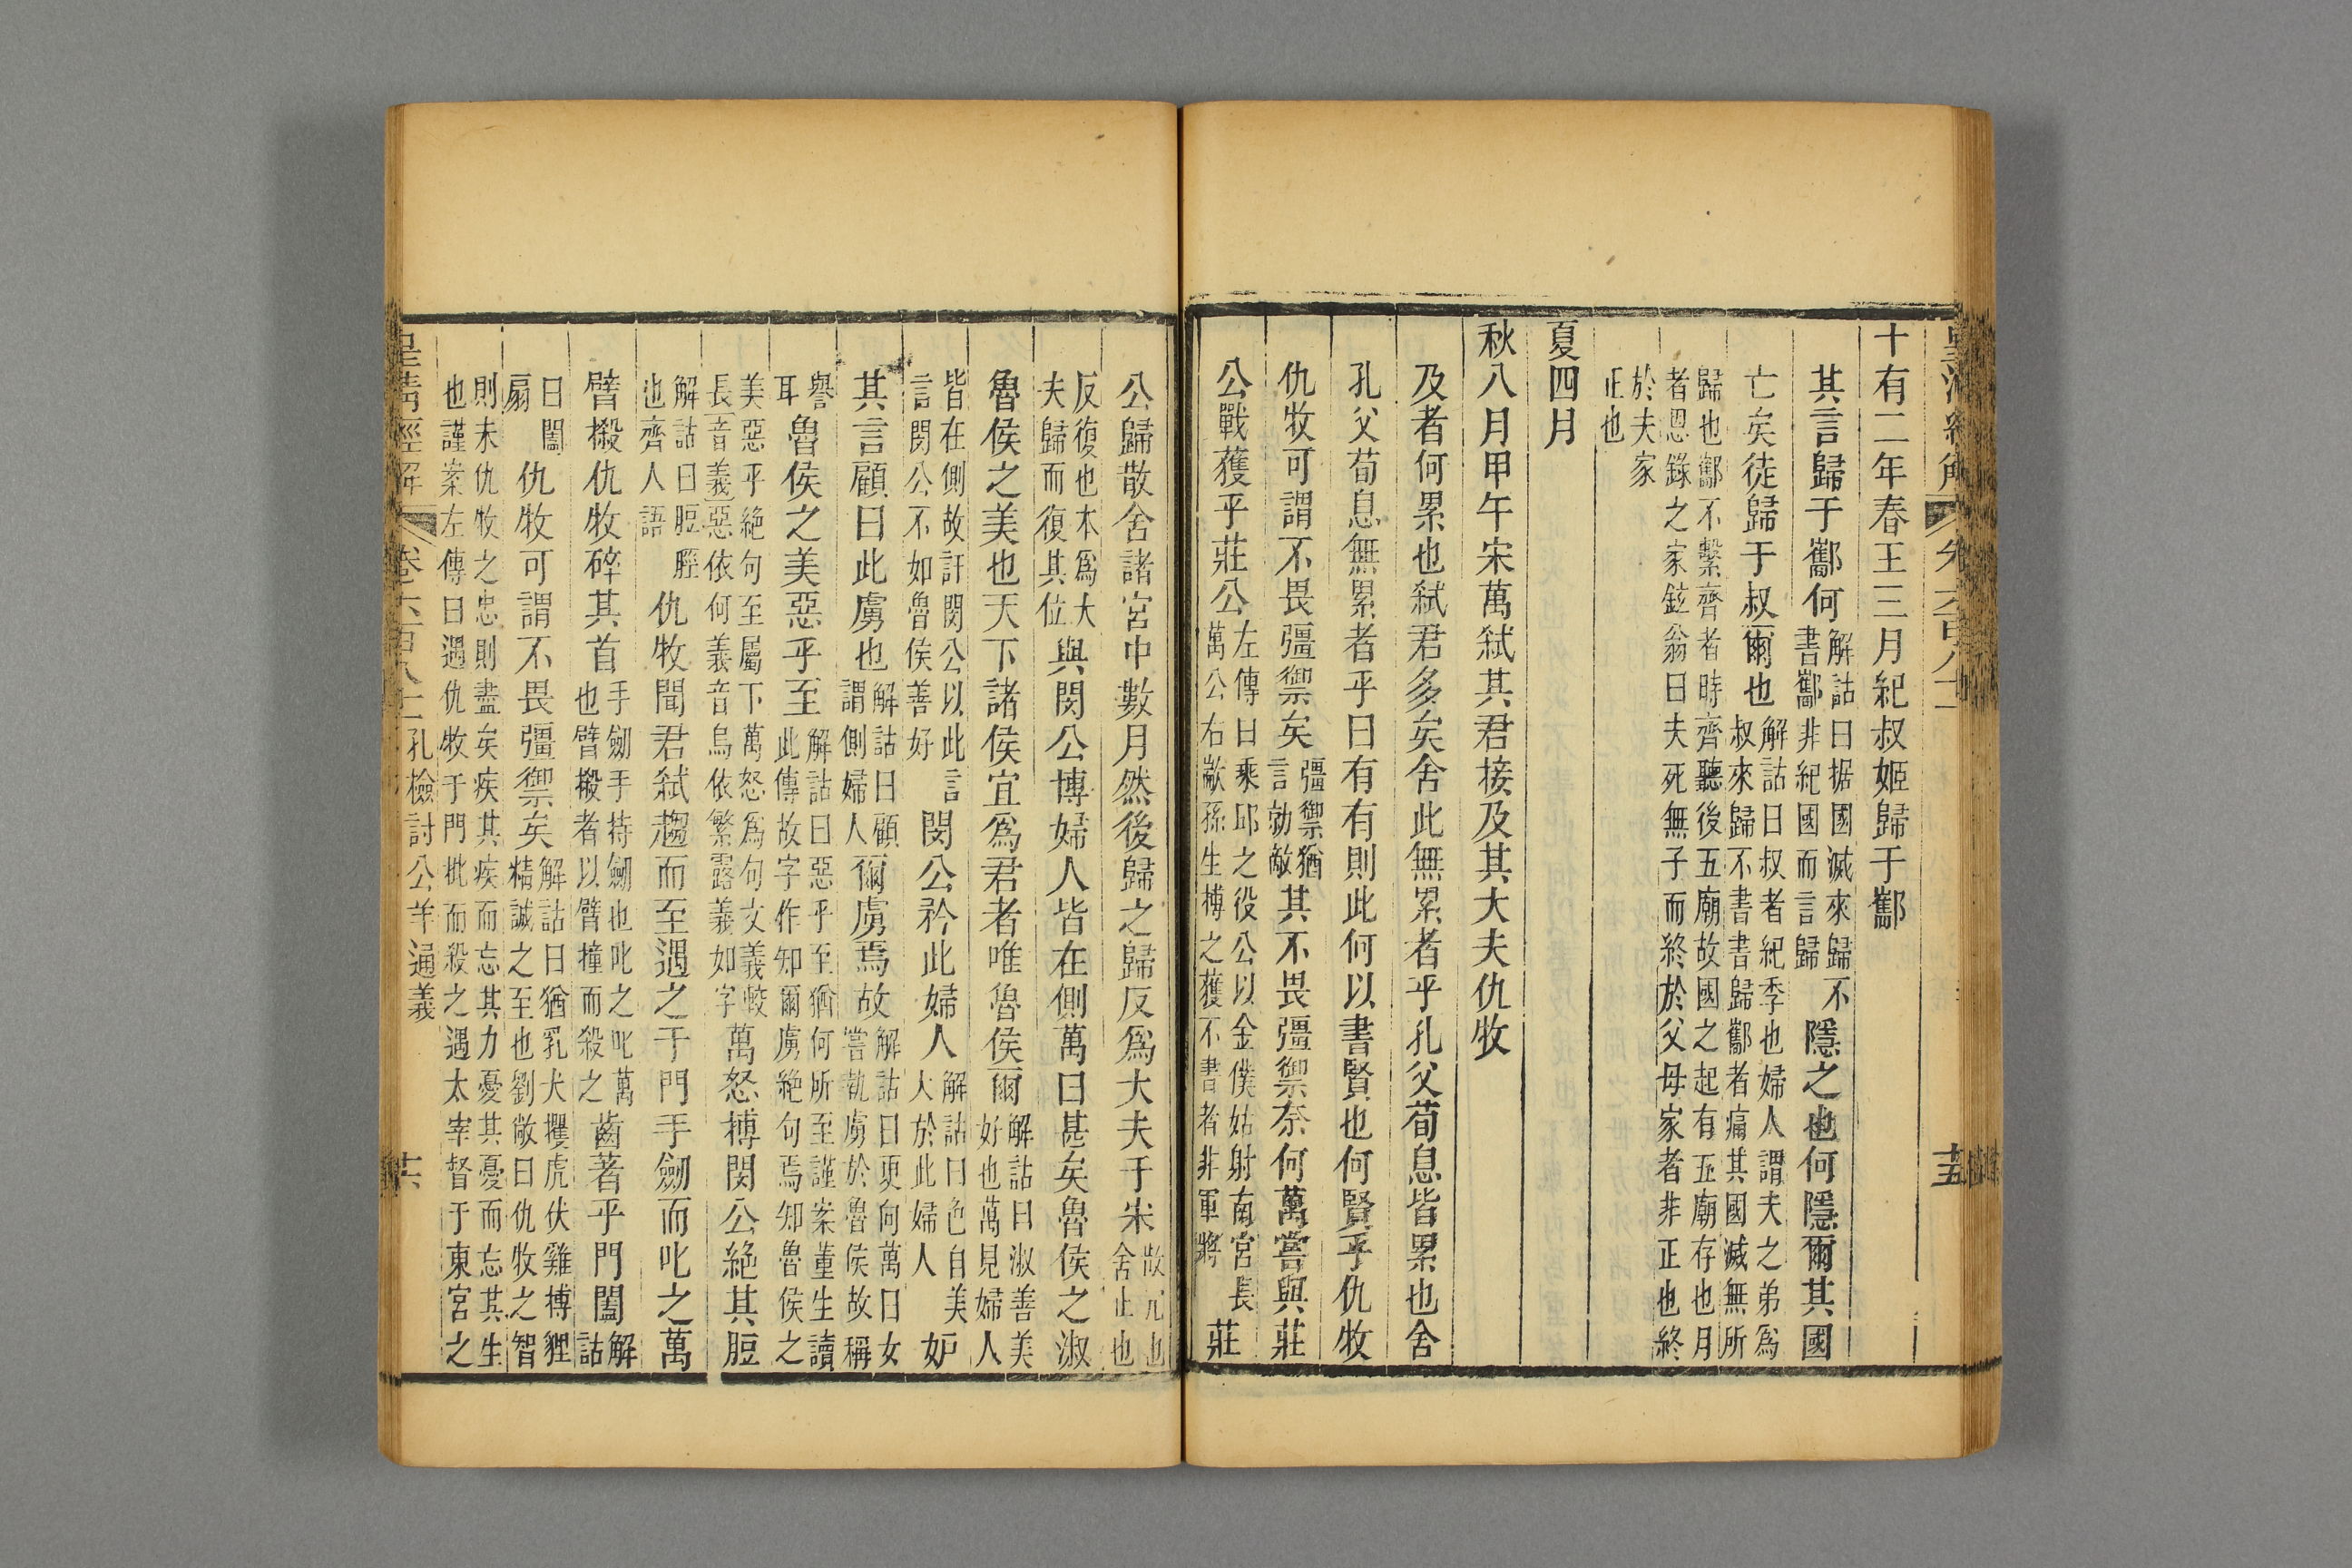 十有二年春王三月紀叔姬歸于酅
其言歸于酅何解詁曰据國滅來歸不書酅非紀國而言歸隱之也何隱爾其國
亡矣徒歸于叔爾也解詁曰叔者紀季也婦人謂夫之弟爲叔來歸不書書歸酅者痛其國滅無所
歸也酅不繫齊者時齊聽後五廟故國之起有五廟存也月者恩錄之家鉉翁曰夫死無子而終於父母家者非正也終
於夫家正也
夏四月
秋八月甲午宋萬弑其君接及其大夫仇牧
及者何累也弑君多矣舍此無累者乎孔父荀息皆累也舍
孔父荀息無累者乎曰有有則此何以書賢也何賢乎仇牧
仇牧可謂不畏彊禦矣彊禦猶言勍敵其不畏彊禦奈何萬嘗與莊
公戰獲乎莊公左傳曰乘邱之役公以金僕姑射南宮長萬公右歂孫生搏之獲不書者非軍將莊
公歸散舍諸宮中數月然後歸之歸反爲大夫于宋散冗也舍止也
反復也本爲大夫歸而復其位與閔公博婦人皆在側萬曰甚矣魯侯之淑
魯侯之美也天下諸侯宜爲君者唯魯侯爾解詁曰淑善美好也萬見婦人
皆在側故訐閔公以此言言閔公不如魯侯善好閔公矜此婦人解詁曰色自美大於此婦人妒
其言顧曰此虜也解詁曰顧謂側婦人爾虜焉故解詁曰更向萬曰女嘗執虜於魯侯故稱
譽耳魯侯之美惡乎至解詁曰惡乎至猶何所至謹案董生讀此傳故字作知爾虜絕句焉知魯侯之
美惡乎絕句至屬下萬怒爲句文義較長音義惡依何義音烏依繁露義如字萬怒搏閔公絕其脰
解詁曰脰脛也齊人語仇牧聞君弑趨而至遇之于門手劒而叱之萬
臂摋仇牧碎其首手劒手持劒也叱之叱萬也臂摋者以臂撞而殺之齒著乎門闔解詁
曰闔扇仇牧可謂不畏彊禦矣解詁曰猶乳犬攫虎伏雞搏貍精誠之至也劉敞曰仇牧之智
則未仇牧之忠則盡矣疾其疾而忘其力憂其憂而忘其生也謹案左傳曰遇仇牧于門批而殺之遇太宰督于東宮之
皇清經解 卷六百八十二 孔檢討公羊通義